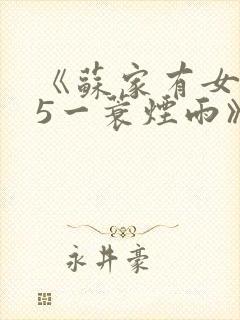 《蘇家有女
5一蓑煙雨》
永井豪